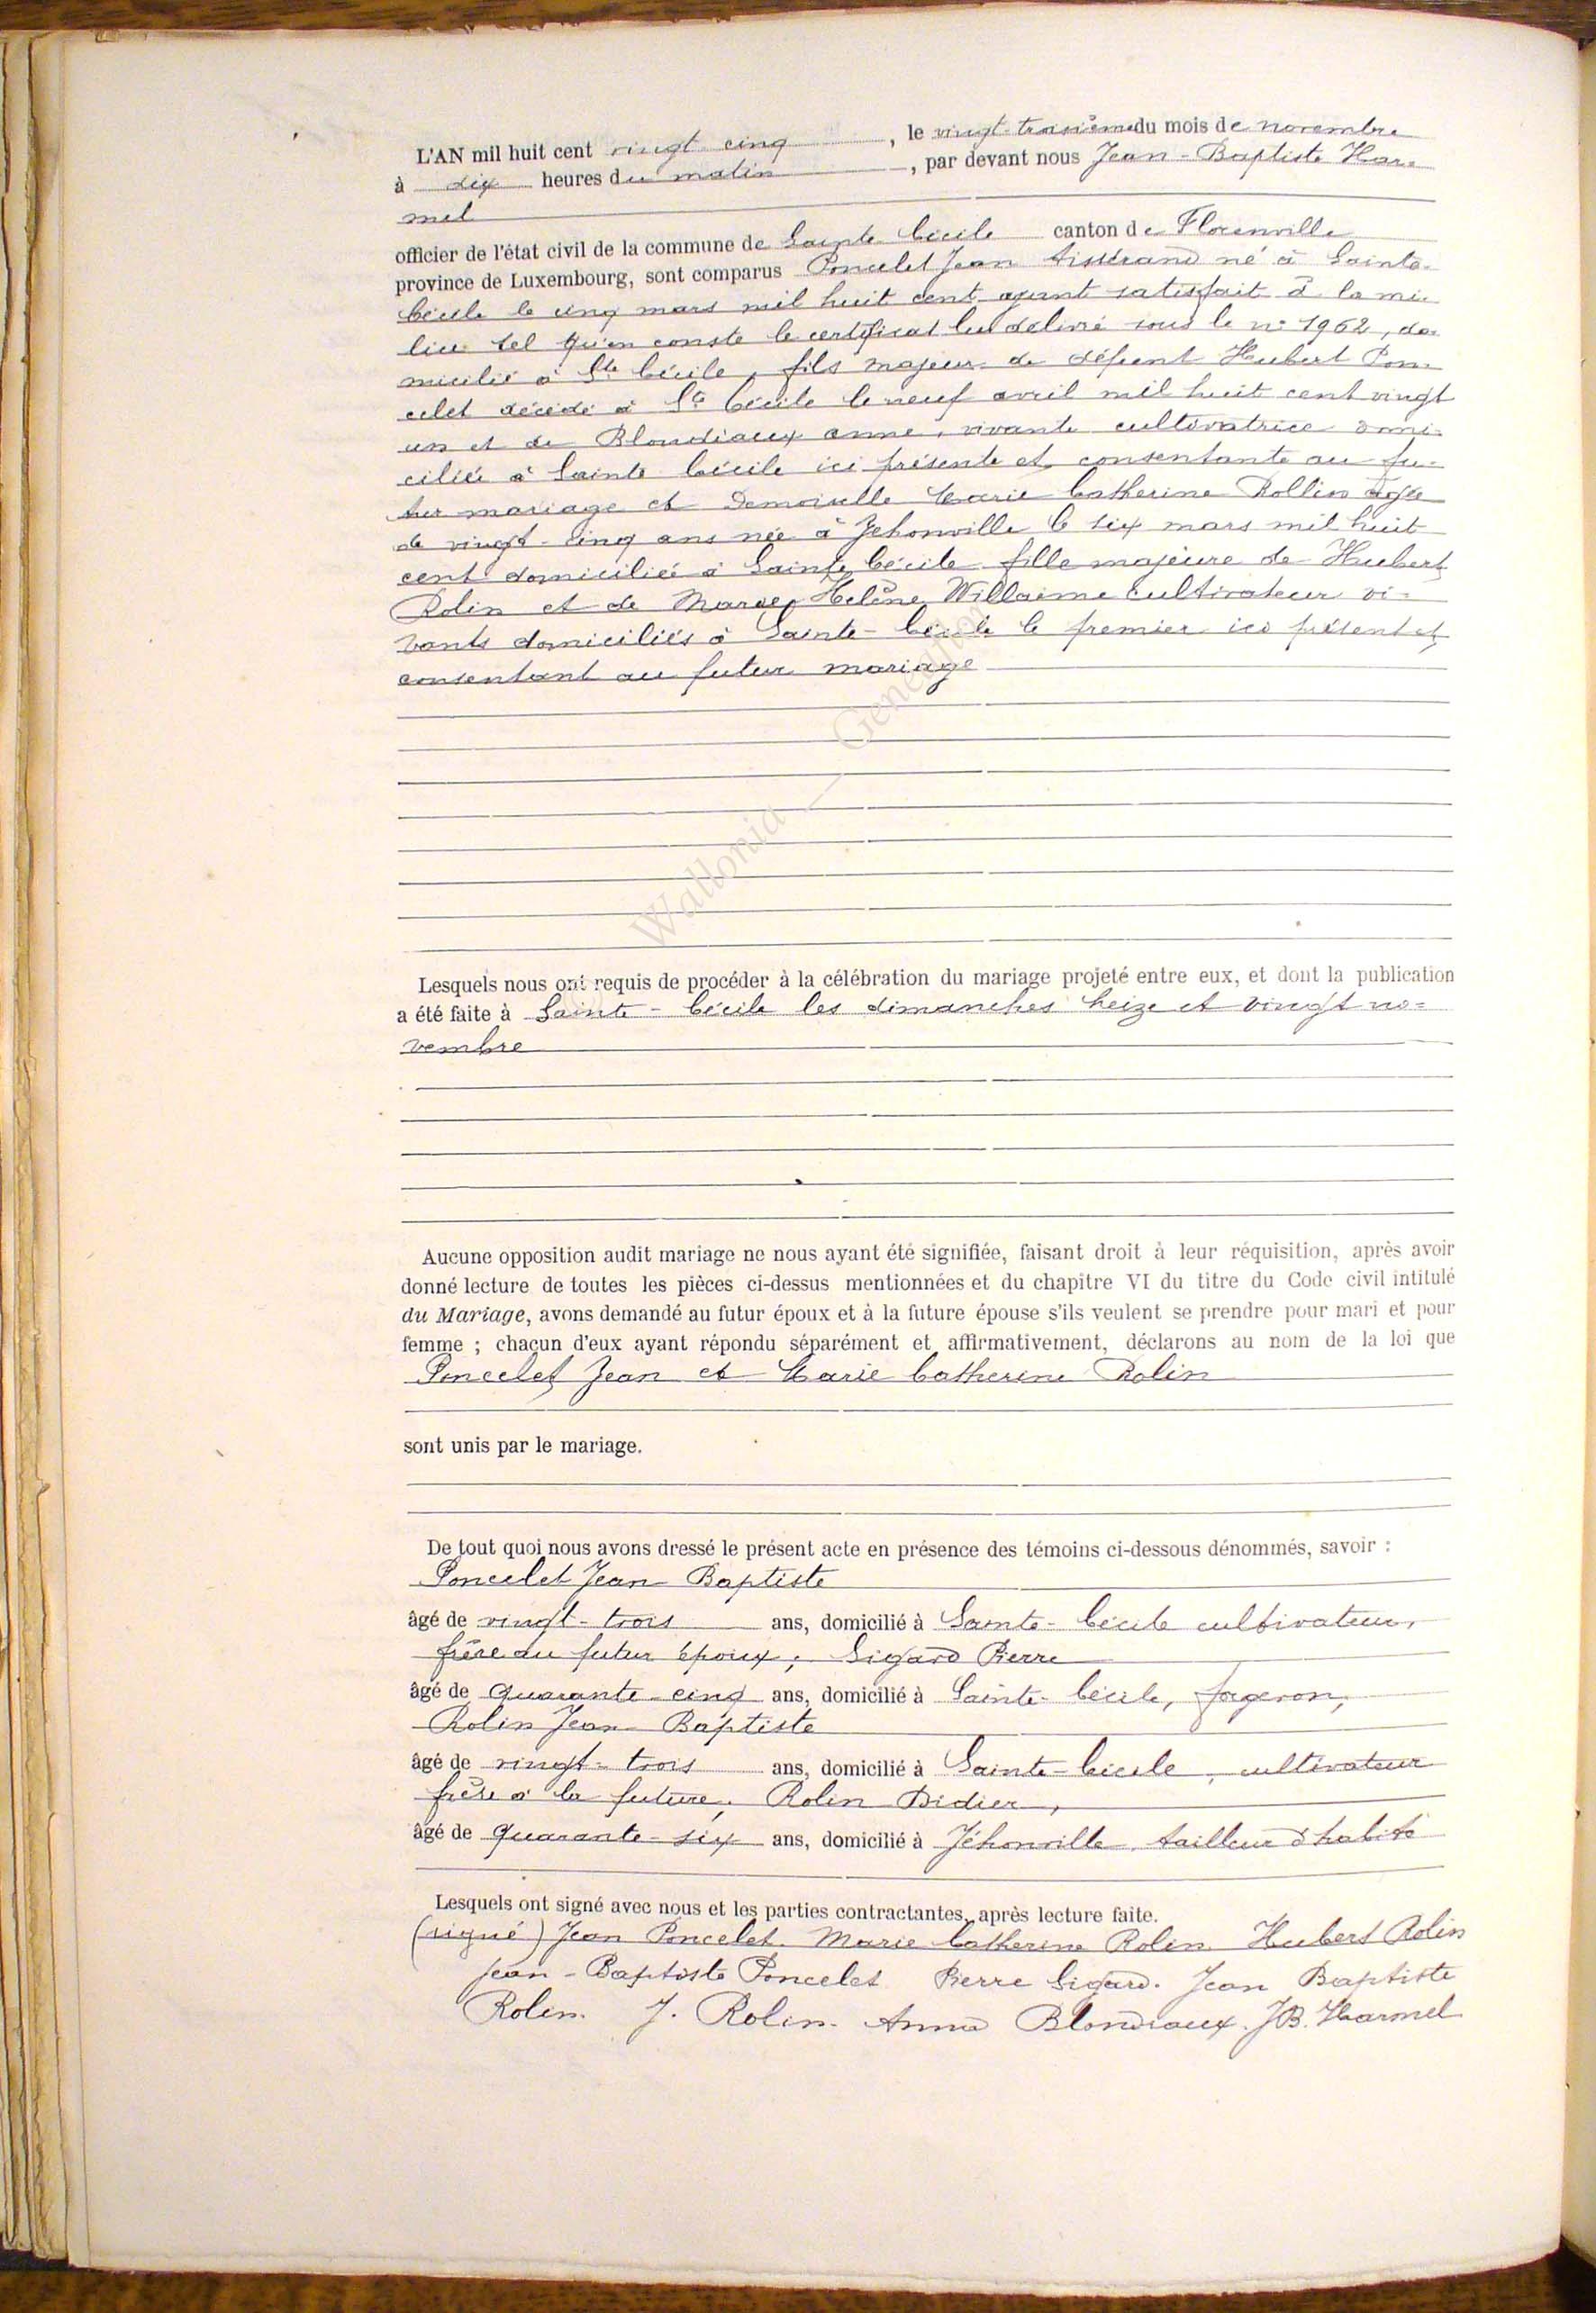 L'AN mil huit cent vingt cinq, le vingt-troisième du mois de novembre
à dix heures du matin, par devant nous Jean-Baptiste Har=
mel
officier de l'état civil de la commune de Sainte Cécile canton de Florenville
province de Luxembourg, sont comparus Poncelet Jean tisserand né à Sainte-
Cécile le cinq mars mil huit cent ayant satisfait à la mi-
lice tel qu'en conste le certificat lui délivré sous le n° 1962, do-
micilié à Ste Cécile, fils majeur de défunt Hubert Pon-
celet décédé à Ste Cécile le neuf avril mil huit cent vingt
un et de Blondiaux anne, vivante cultivatrice domi-
ciliée à Sainte Cécile ici présente et consentante au fu-
tur mariage et Demoiselle Marie Catherine Rollin âgée
de vingt-cinq ans née à Jehonville le six mars mil huit
cent domiciliée à Sainte Cécile fille majeure de Hubert
Rolin et de Marie Helène Willaime cultivateur vi=
vants domiciliés à Sainte-Cécile le premier ici présent et
consentant au futur mariage
Wallonia — Geneanet
Lesquels nous ont requis de procéder à la célébration du mariage projeté entre eux, et dont la publication
a été faite à Sainte-Cécile les dimanches treize et vingt no=
vembre
Aucune opposition audit mariage ne nous ayant été signifiée, faisant droit à leur réquisition, après avoir
donné lecture de toutes les pièces ci-dessus mentionnées et du chapitre VI du titre du Code civil intitulé
du Mariage, avons demandé au futur époux et à la future épouse s'ils veulent se prendre pour mari et pour
femme ; chacun d'eux ayant répondu séparément et affirmativement, déclarons au nom de la loi que
Poncelet Jean et Marie Catherine Rolin
sont unis par le mariage.
De tout quoi nous avons dressé le présent acte en présence des témoins ci-dessous dénommés, savoir :
Poncelet Jean Baptiste
âgé de vingt-trois ans, domicilié à Sainte-Cécile cultivateur,
frère du futur époux; Sigard Pierre
âgé de quarante-cinq ans, domicilié à Sainte-Cécile, forgeron,
Rolin Jean Baptiste
âgé de vingt-trois ans, domicilié à Sainte-Cécile, cultivateur
frère à la future; Rolin Didier,
âgé de quarante-six ans, domicilié à Jéhonville, tailleur d'habits
Lesquels ont signé avec nous et les parties contractantes, après lecture faite.
(signé) Jean Poncelet. Marie Catherine Rolin Hubert Rolin
Jean-Baptiste Poncelet Pierre Sigard. Jean Baptiste
Rolin. J. Rolin. Anna Blondiaux. JB. Harmel